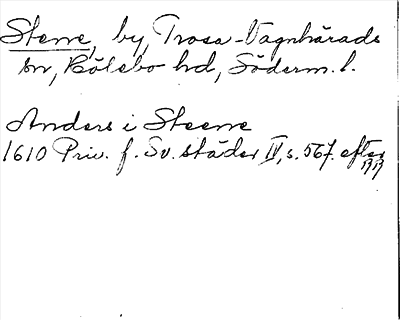 Stene, by, Trosa-Vagnhärads
sn, Hölebo hd, Söderm. l.
Anders i Steene
1610 Priv. f. Sv. städer IV, s. 567. efter